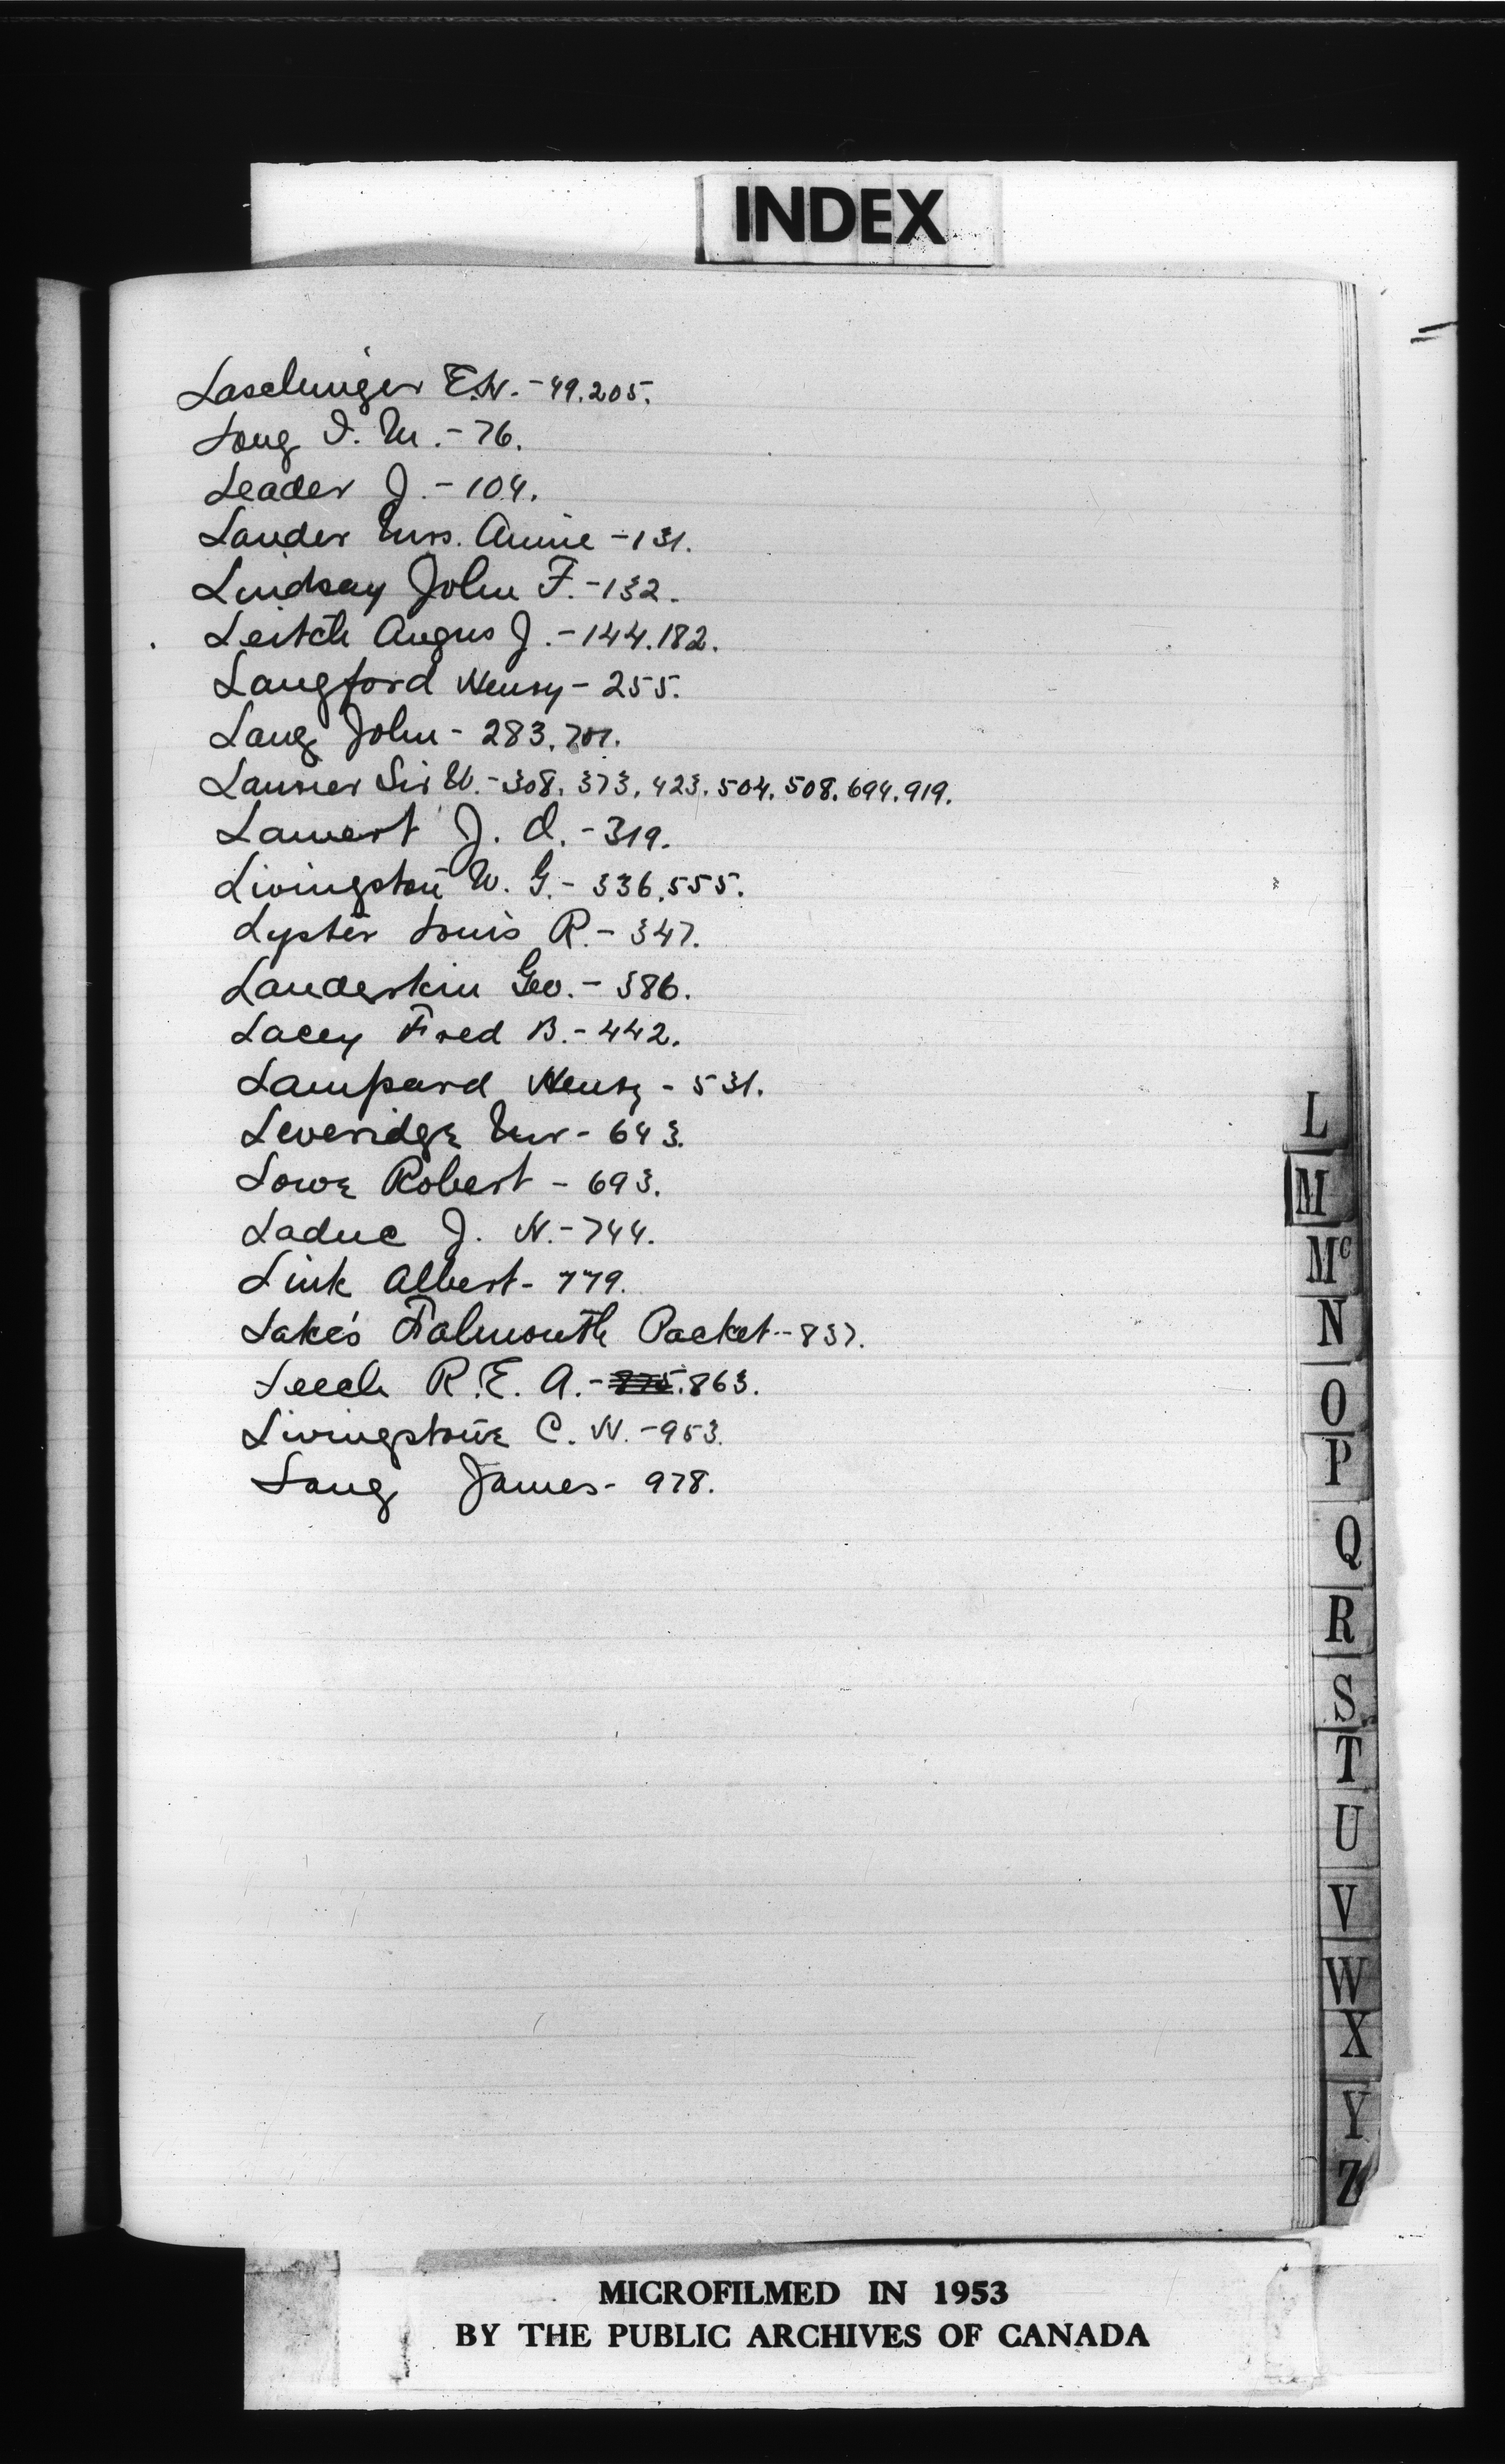 INDEX
Laschinger E.H. - 49. 205.
Long I. M. - 76.
Leader J. - 104.
Lauder Mrs. Annie - 131.
Lindsay John F. - 132.
Leitch Angus J. - 144. 182.
Langford Henry - 255.
Lang John - 283. 701.
Laurier Sir W. - 308. 373. 423. 504. 508. 694. 919.
J. O. - 319.
Livingston W. G. - 336. 555.
Lyster Louis R. - 347.
Landerkin Geo. - 386.
Lacey Fred B. - 442.
Lampard Henry - 531.
Leveridge Mr - 643.
Lowe Robert - 693.
Laduc J. H. - 744.
Link Albert - 779.
Lake's Falmouth Packet - 837.
Leech R. E. A. - 863.
Livingstone C. H. - 953.
Lang James - 978.
L
M
Mc
N
O
P
Q
R
S
T
U
V
W
X
Y
Z
MICROFILMED IN 1953
BY THE PUBLIC ARCHIVES OF CANADA